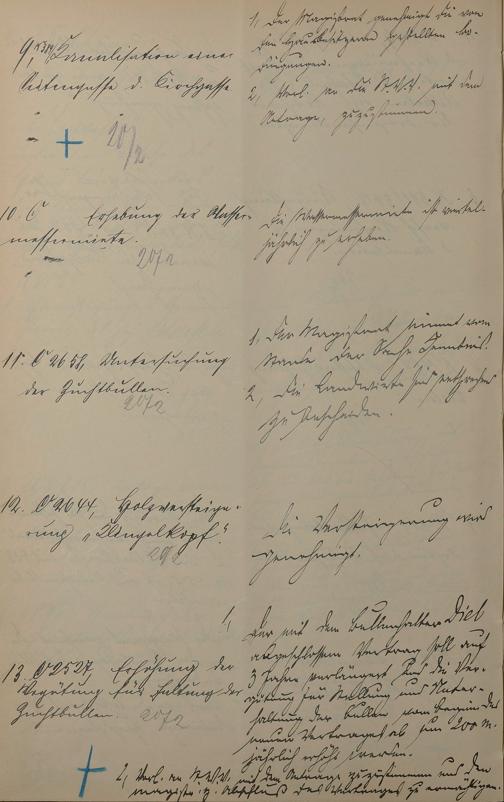 9, Kanalisation einer
Seitengasse d. Kirchgasse
20/2
1, Der Magistrat genehmigt die von
den Grundbesitzern gestellten Be-
dingungen.
2, Vorl. an die St.V.V. mit dem
Antrage, zuzustimmen.
10. C Erhebung der Wasser-
messermiete.
20/2
Die Wassermessermiete ist viertel-
jährlich zu erheben.
11. C 2658, Untersuchung
der Zuchtbullen.
20/2
1, Der Magistrat nimmt vom
Stande der Sache Kenntnis.
2, Die Landwirte sind entsprechend
zu bescheiden.
12. C 2644, Holzversteige-
rung „Klingelkopf".
Die Versteigerung wird
genehmigt.
13. C 2527, Erhöhung der
Vergütung für Haltung der
Zuchtbullen.
20/2
1, Der mit dem Bullenhalter Diel
abgeschlossene Vertrag soll auf
3 Jahre verlängert und die Ver-
gütung für Stellung und Unter-
haltung der Bullen vom Beginn des
neuen Vertrages ab um 200 M.
jährlich erhöht werden.
2, Vorl. an St.V.V. mit dem Antrage zuzustimmen und den
Magistr. z. Abschluß des Vertrages zu ermächtigen.